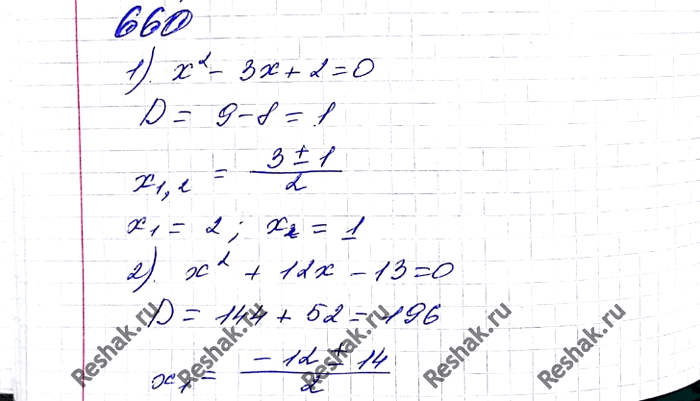 660
1). x² - 3x + 2 = 0
D = 9 - 8 = 1
x₁,₂ = (3 ± 1)/2
x₁ = 2; x₂ = 1
2). x² + 12x - 13 = 0
D = 144 + 52 = 196
x₁ = (-12 ± 14)/2
Reshak.ru Reshak.ru Reshak.ru Reshak.ru Reshak.ru